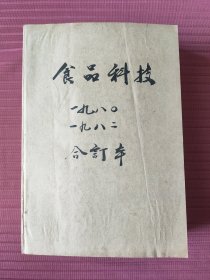 食品科技
一九八〇
一九八二
合訂本